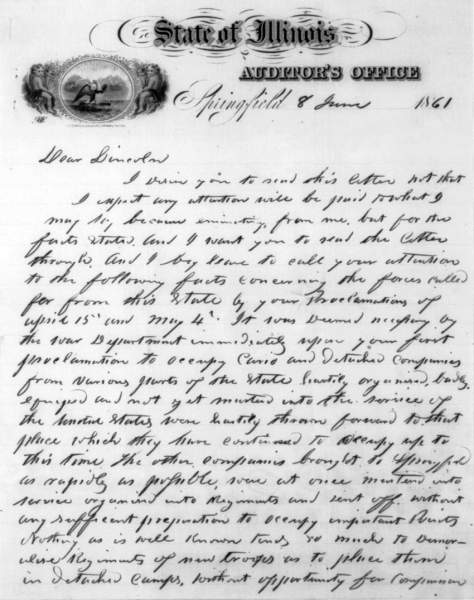 State of Illinois
AUDITOR'S OFFICE
Springfield 8 June 1861
Dear Lincoln
I desire you to read this letter not that
I expect any attention will be paid to what I
may say because emanating from me, but for the
facts stated. And I want you to read the letter
through. And I beg leave to call your attention
to the following facts concerning the forces called
for from this State by your Proclamations of
april 15th and May 4th. It was deemed necessary by
the war Department immediately upon your first
proclamation to occupy Cairo and detached companies
from various parts of the State hastily organised, badly
equiped and not yet mustered into the service of
the United States were hastily thrown forward to that
place which they have continued to occupy up to
this time. The other companies brought to Springfield
as rapidly as possible were at once mustered into
service organised into Regiments and sent off without
any sufficient preparation to occupy important Points
Nothing as is well known tends so much to demor-
alise Regiments of new troops as to place them
in detached camps, without opportunity for